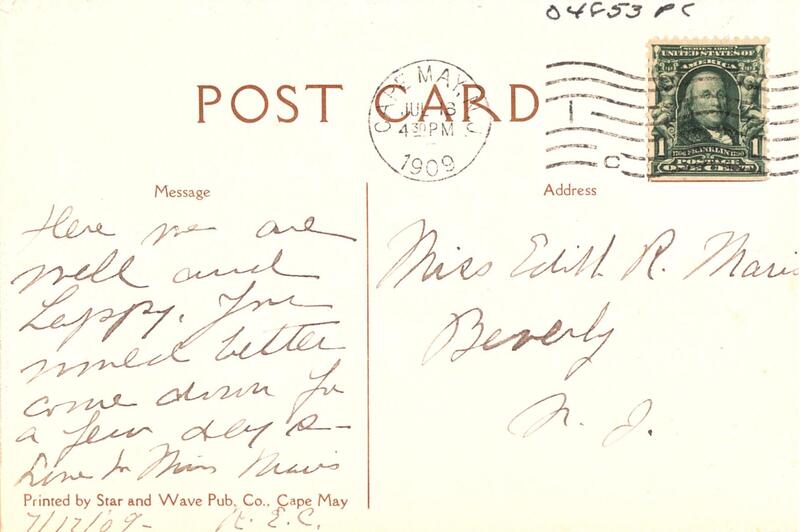 04853 PC
SERIES 1902
UNITED STATES OF
AMERICA
1706 FRANKLIN 1790
1 POSTAGE 1
ONE CENT
POST CARD
CAPE MAY, N.J.
JUL 16
4 30 PM
1909
1
C
Message
Address
Here we are
well and
happy. You
better
come down for
a few days —
Love to Miss Maris
7/17/09 - H. E. C.
Printed by Star and Wave Pub. Co., Cape May
Miss Edith R. Maris
Beverly
N. J.